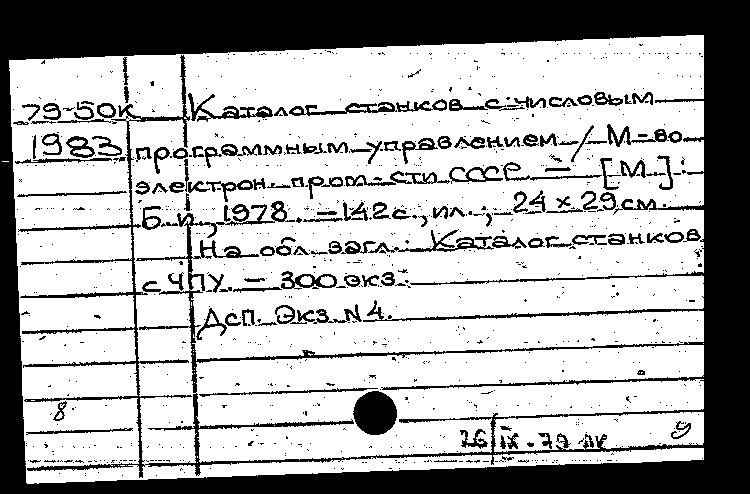 79-50к Каталог станков с числовым
1983 программным управлением / М-во
электрон. пром-сти СССР. — [М.]:
Б. и., 1978. — 142 с., ил.; 24 × 29 см.
На обл. загл.: Каталог станков
с ЧПУ. — 300 экз.
Дсп. Экз. N 4.
8
26|IX-79 лк У